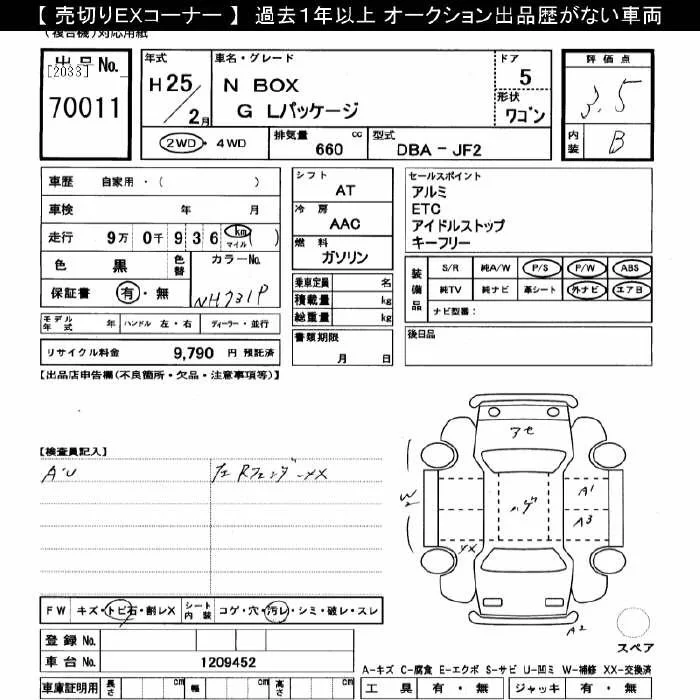 【 売切りEXコーナー 】 過去１年以上 オークション出品歴がない車両
(複合機)対応用紙
出 品 No.
[2033]
70011
年式
H 25/2月
車名・グレード
N BOX
G Lパッケージ
ドア
5
形状
ワゴン
評 価 点
3.5
内装
B
2WD ・ 4WD
排気量 cc
660
型式
DBA - JF2
車歴 自家用 ・ ( )
車検 年 月
走行 9万 0千 9 3 6 km マイル ( )
色 黒 色替 カラーNo.
保証書 有 ・ 無 NH731P
シフト
AT
冷 房
AAC
燃 料
ガソリン
乗車定員 名
積載量 kg
総重量 kg
セールスポイント
アルミ
ETC
アイドルストップ
キーフリー
装備品
S/R 純A/W P/S P/W ABS
純TV 純ナビ 革シート 外ナビ エアB
ナビ型番：
モデル年式 年 ハンドル 左・右 ディーラー・並行
リサイクル料金 9,790 円 預託済
書類期限
月 日
後日品
【出品店申告欄(不良箇所・欠品・注意事項等)】
【検査員記入】
A・U
左Rフェンダー XX
アセ
ハゲ
W2
A1
A3
XX
A2
スペア
FW キズ・トビ石・割レX シート内装 コゲ・穴・汚レ・シミ・破レ・スレ
登録 No.
車台 No. 1209452
A-キズ C-腐食 E-エクボ S-サビ U-凹ミ W-補修 XX-交換済
車庫証明用 長さ cm 幅 cm 高さ cm
工 具 有 ・ 無 ジャッキ 有 ・ 無